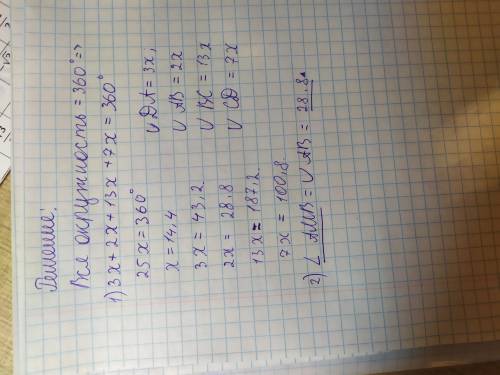 Решение:
Вся окружность = 360° =>
1) 3x + 2x + 13x + 7x = 360°
25x = 360°
x = 14,4
3x = 43,2
2x = 28.8
13x = 187,2
7x = 100,8
∪ DA = 3x;
∪ AB = 2x
∪ BC = 13x
∪ CD = 7x
2) ∠ AMB = ∪ AB = 28.8